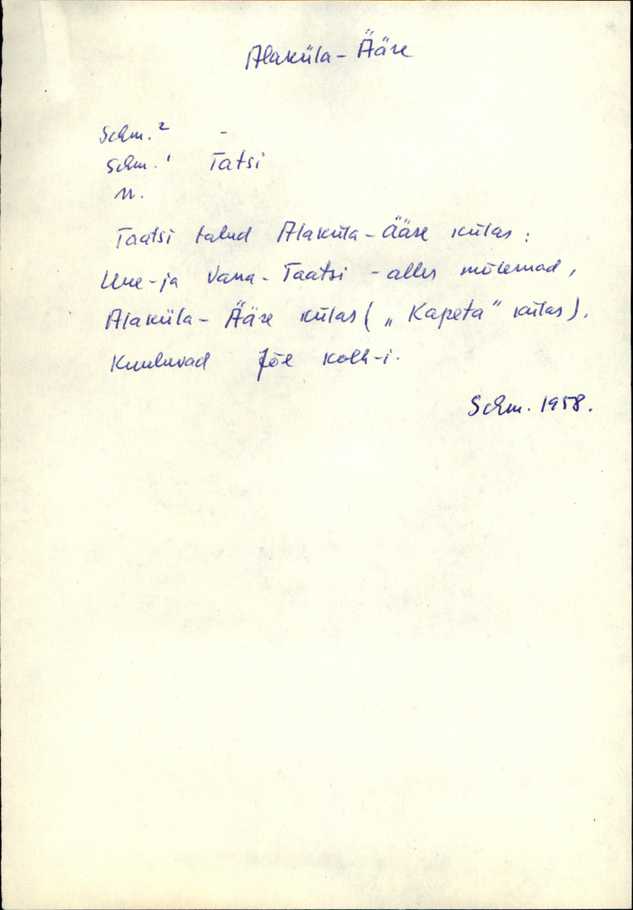 Alaküla-Ääre
Schm.² -
Schm.¹ Tatsi
n.
Taatsi talud Alaküla-Ääre külas:
Uue-ja Vana-Taatsi - alles mõlemad,
Alaküla-Ääre külas („Kapeta" külas).
Kuuluvad Jõe kolh-i.
Schm. 1958.